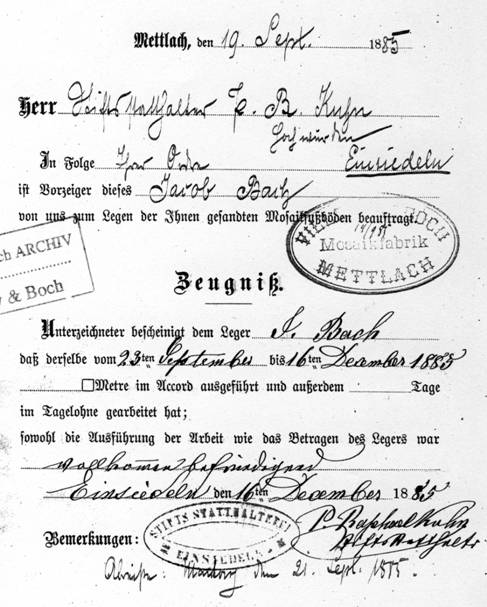 Mettlach, den 19. Sept. 1885
Herr Stiftsstatthalter P. R. Kuhn
Hochwürden
In Folge Ihrer Ordre Einsiedeln
ist Vorzeiger dieses Jacob Bach
von uns zum Legen der Ihnen gesandten Mosaikfußböden beauftragt.
VILLEROY & BOCH
Mosaikfabrik
METTLACH
ch ARCHIV
y & Boch
Zeugniß.
Unterzeichneter bescheinigt dem Leger J. Bach
daß derselbe vom 23ten September bis 16ten December 1885
□Metre im Accord ausgeführt und außerdem Tage
im Tagelohne gearbeitet hat;
sowohl die Ausführung der Arbeit wie das Betragen des Legers war
vollkomen befriedigend
Einsiedeln den 16ten December 1885
STIFTS STATTHALTEREI
EINSIEDELN
P. Raphael Kuhn
Stiftsstatthalter
Bemerkungen:
Abreise: Montag den 21. Sept. 1885.